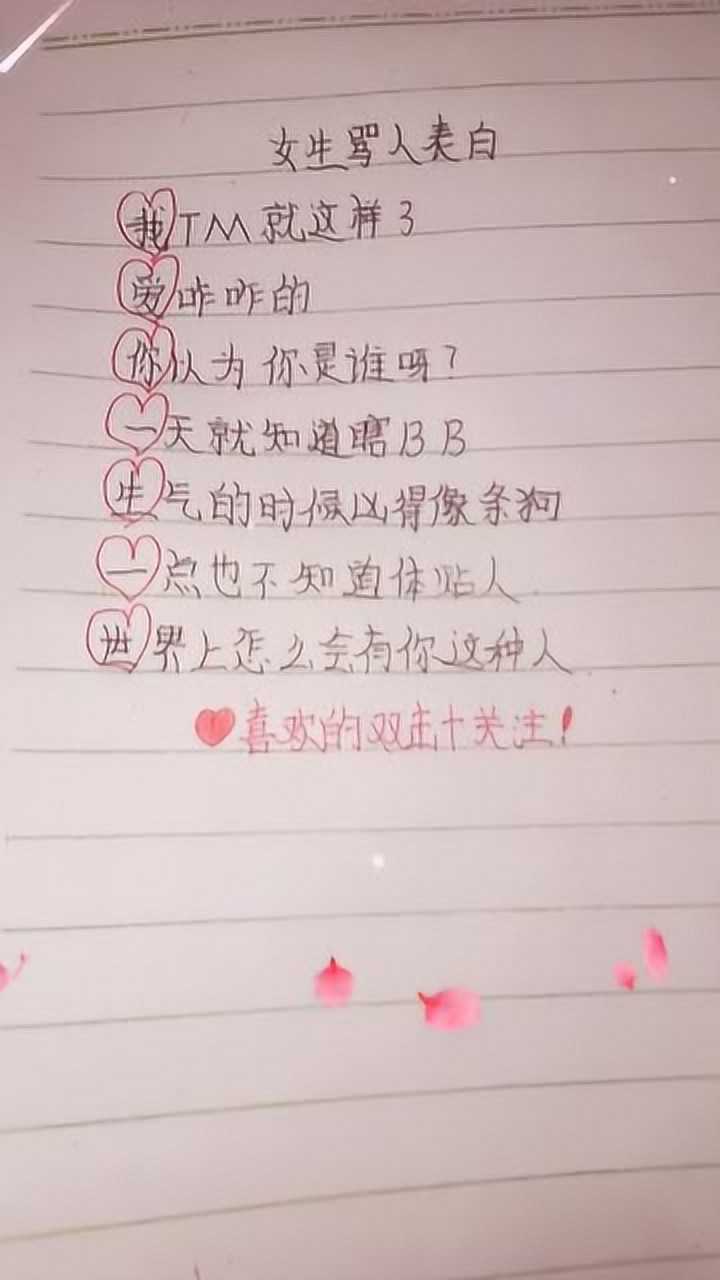 女生骂人表白
我TM就这样3
爱咋咋的
你以为你是谁呀?
一天就知道瞎BB
生气的时候凶得像条狗
一点也不知道体贴人
世界上怎么会有你这种人
喜欢的双击十关注!